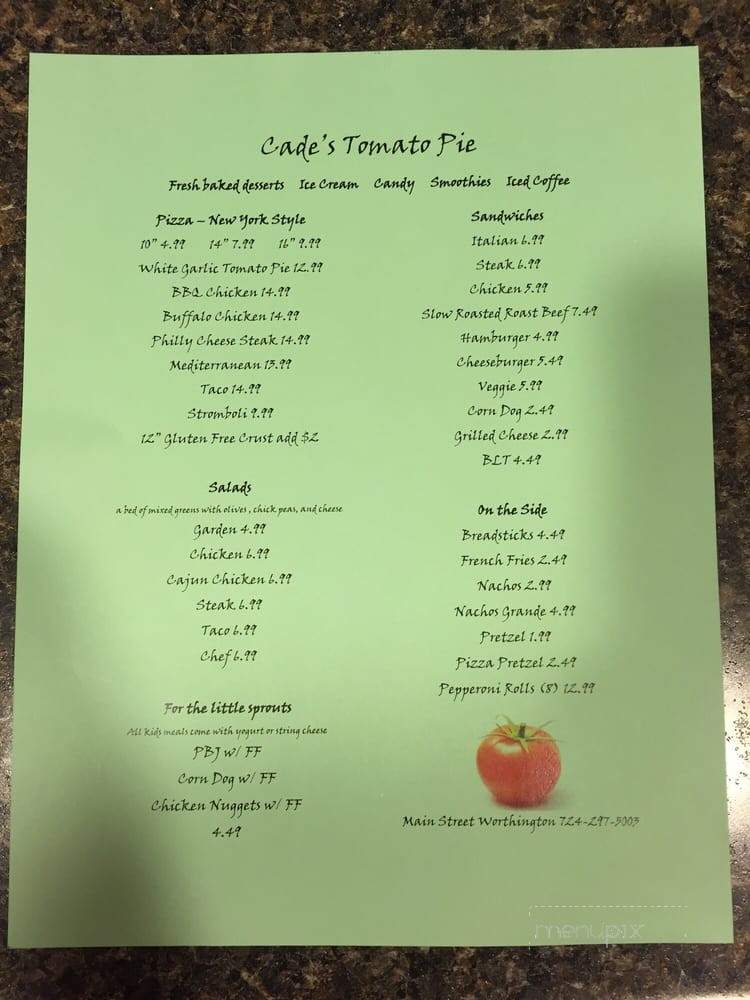 Cade's Tomato Pie
Fresh baked desserts Ice Cream Candy Smoothies Iced Coffee
Pizza – New York Style
10" 4.99 14" 7.99 16" 9.99
White Garlic Tomato Pie 12.99
BBQ Chicken 14.99
Buffalo Chicken 14.99
Philly Cheese Steak 14.99
Mediterranean 13.99
Taco 14.99
Stromboli 9.99
12" Gluten Free Crust add $2
Salads
a bed of mixed greens with olives, chick peas, and cheese
Garden 4.99
Chicken 6.99
Cajun Chicken 6.99
Steak 6.99
Taco 6.99
Chef 6.99
For the little sprouts
All kids meals come with yogurt or string cheese
PBJ w/ FF
Corn Dog w/ FF
Chicken Nuggets w/ FF
4.49
Sandwiches
Italian 6.99
Steak 6.99
Chicken 5.99
Slow Roasted Roast Beef 7.49
Hamburger 4.99
Cheeseburger 5.49
Veggie 5.99
Corn Dog 2.49
Grilled Cheese 2.99
BLT 4.49
On the Side
Breadsticks 4.49
French Fries 2.49
Nachos 2.99
Nachos Grande 4.99
Pretzel 1.99
Pizza Pretzel 2.49
Pepperoni Rolls (8) 12.99
Main Street Worthington 724-297-3003
menupix